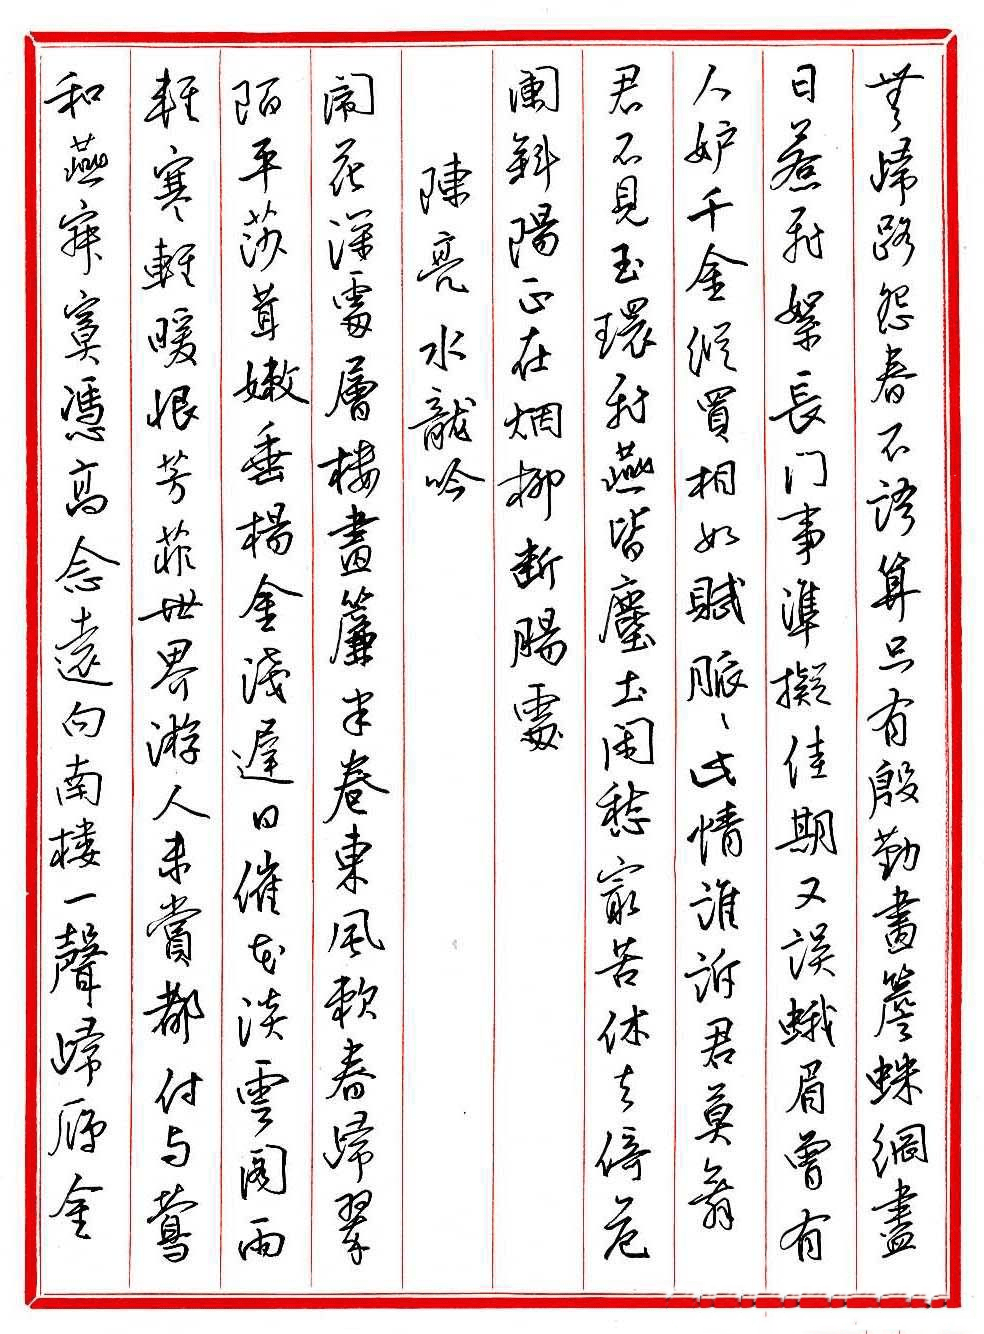 無歸路怨春不語算只有殷勤畫簷蛛網盡
日惹飛絮長門事準擬佳期又誤蛾眉曾有
人妒千金縱買相如賦脈〻此情誰訴君莫舞
君不見玉環飛燕皆塵土閑愁最苦休去倚危
闌斜陽正在烟柳斷腸處
陳亮水龍吟
鬧花深處層樓畫簾半卷東風軟春歸翠
陌平莎茸嫩垂楊金淺遲日催花淡雲閣雨
輕寒輕暖恨芳菲世界游人未賞都付与鶯
和燕寂寞馮高念遠向南樓一聲歸雁金